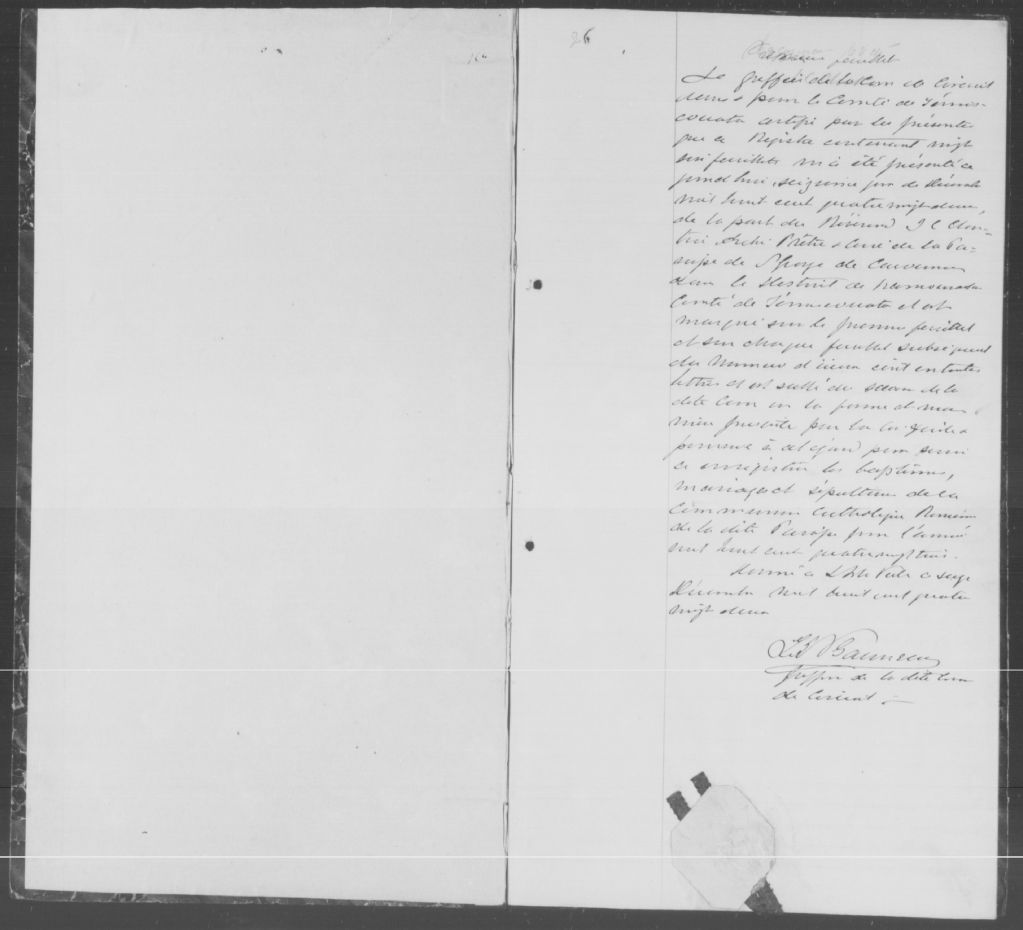 26
Premier feuillet
Le greffier de la Cour de Circuit
dans & pour le Comté de Témis-
couata certifie par les présentes
que ce Registre contenant vingt
six feuillets m'a été présenté ce
jourd'hui, seizième jour de Décembre
mil huit cent quatre vingt deux,
de la part du Révérend
Archi Prêtre & Curé de la Pa-
roisse de St George de Cacouna
dans le District de Kamouraska
Comté de Témiscouata et est
marqué sur le premier feuillet
et sur chaque feuillet subséquent
du numero d'iceux écrit en toutes
lettres et est scellé du sceau de la
dite Cour en la forme et ma-
nière prescrite par la loi
pourvue à cet égard pour servir
à enregistrer les baptêmes,
mariages et sépultures de la
Communion Catholique Romaine
de la dite Paroisse pour l'année
mil huit cent quatre vingt trois.
Donné à L'Isle Verte ce seize
Décembre mil huit cent quatre
vingt deux
Greffier de la dite Cour
de Circuit.